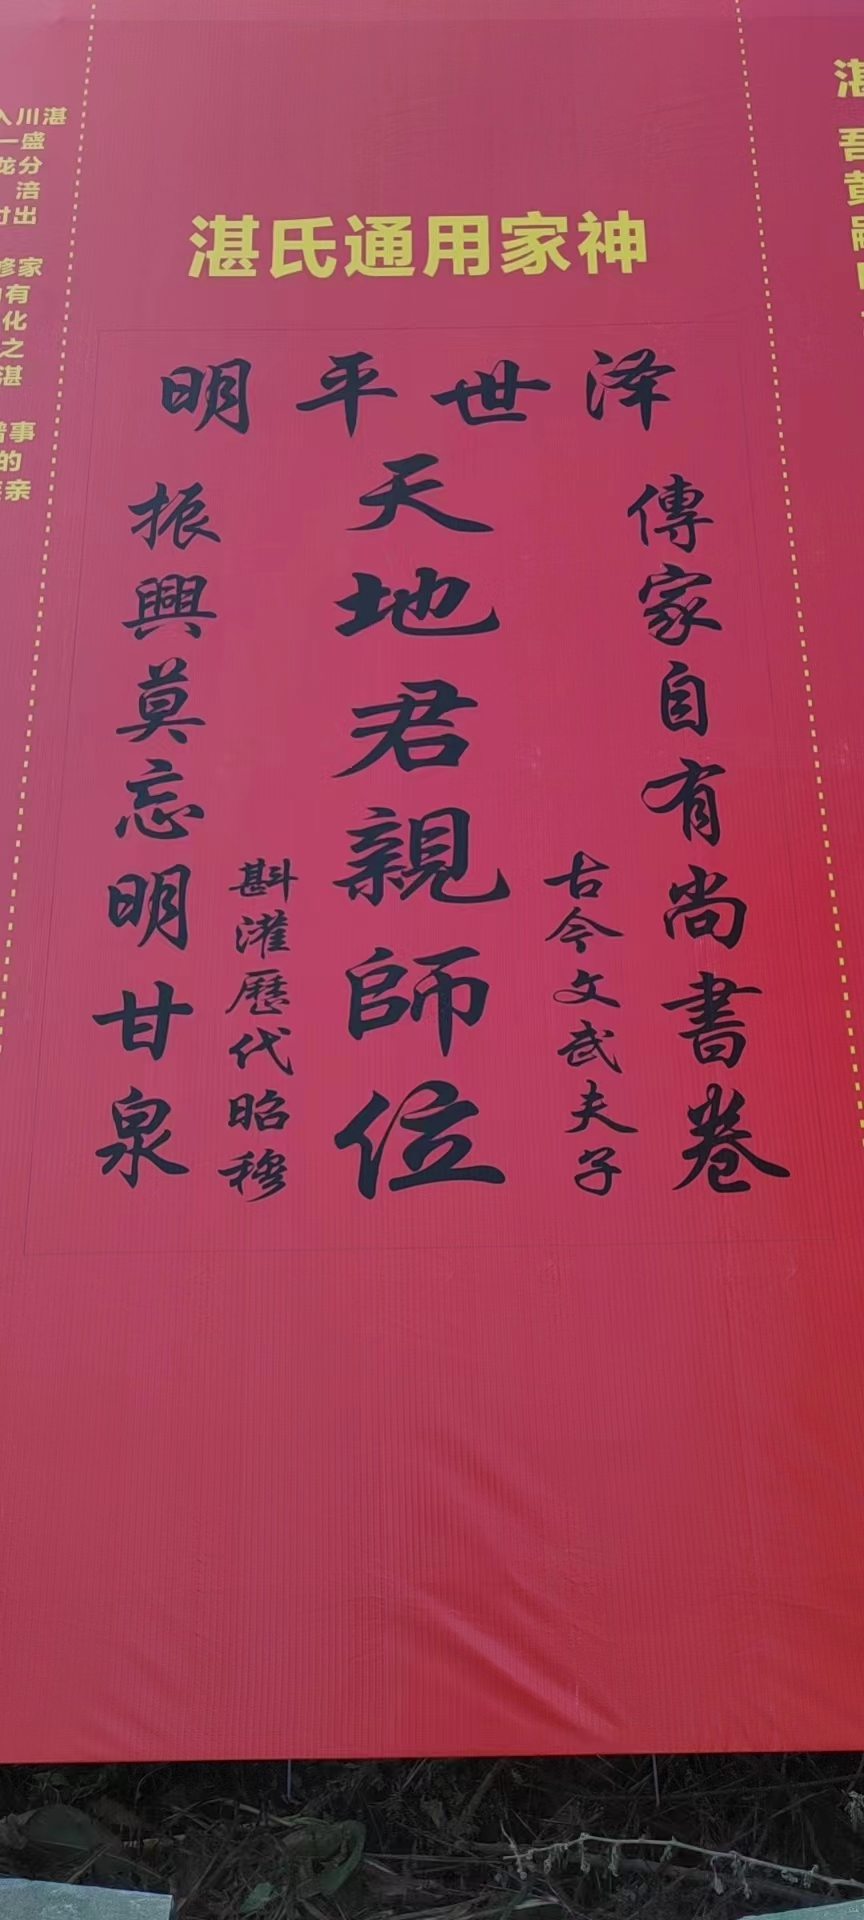 湛氏通用家神
明平世泽
傳家自有尚書卷
古今文武夫子
天地君親師位
斟灌歷代昭穆
振興莫忘明甘泉
入川湛
一盛
龙分
涪
付出
修家
有
化
之
湛
谱事
的
亲
湛
吾
黄
嗣